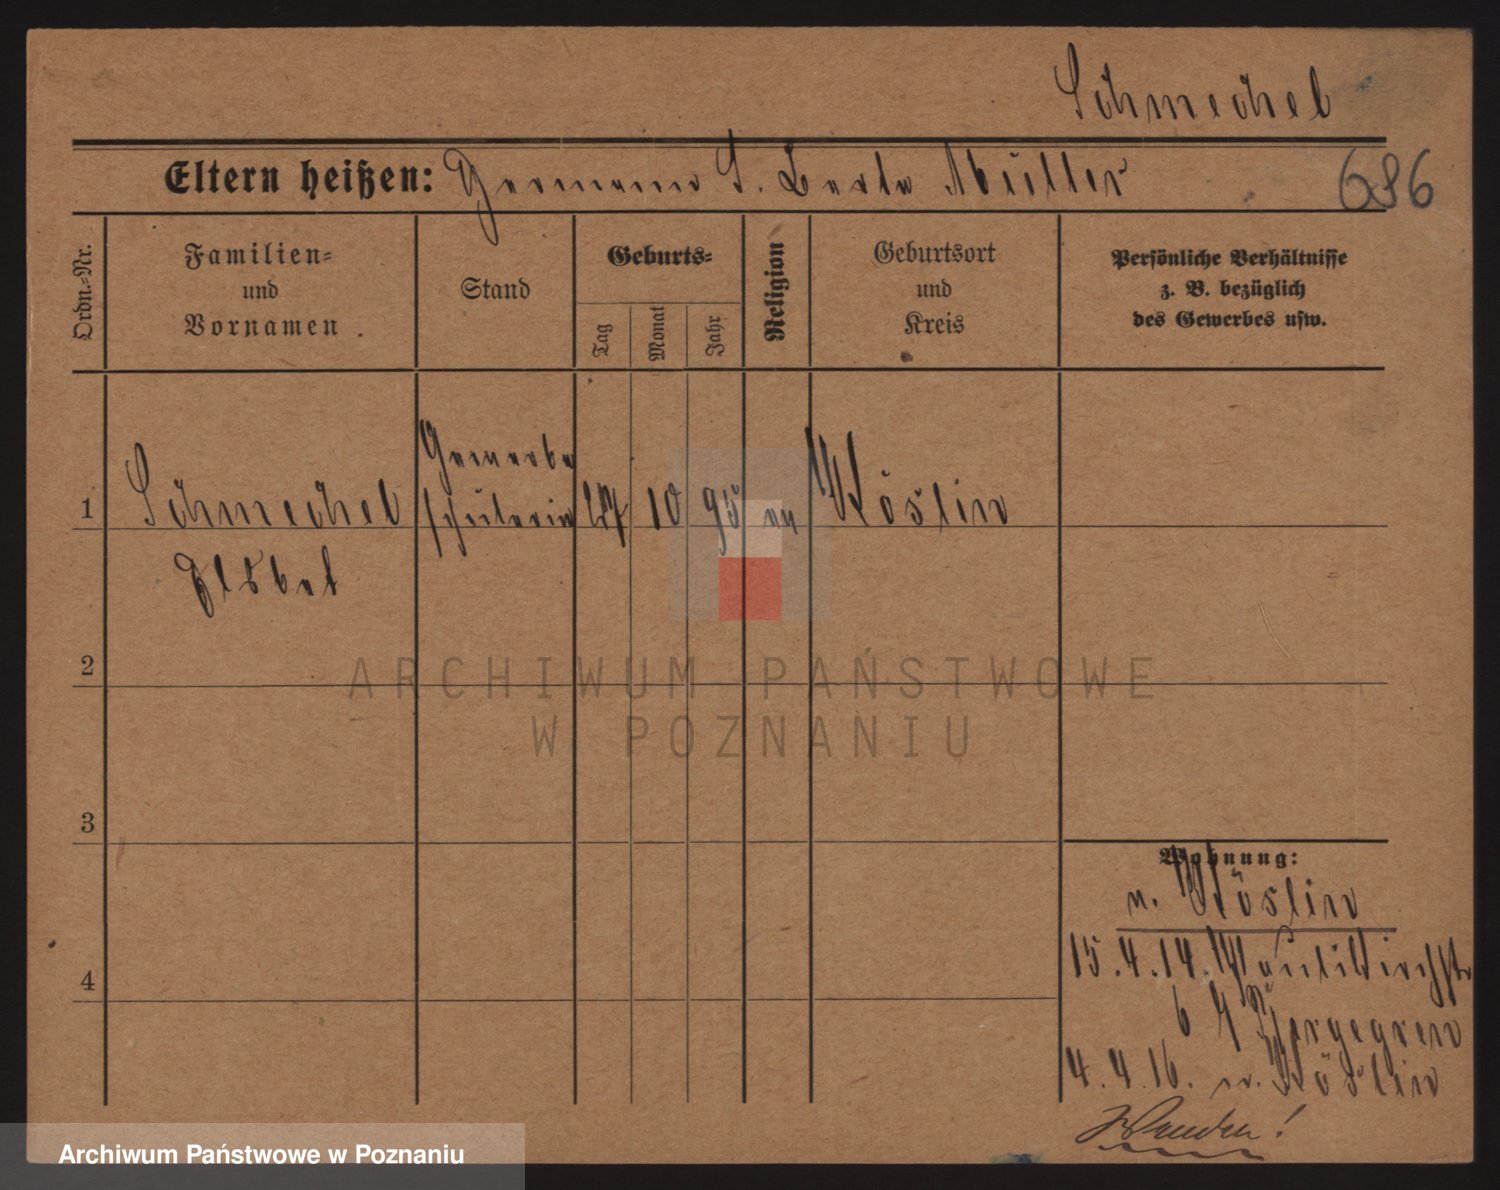 Schmechel
Eltern heißen: Hermann u. Berta Müller
686
Ordn.-Nr.
Familien-
und
Vornamen
Stand
Geburts-
Tag
Monat
Jahr
Religion
Geburtsort
und
Kreis
Persönliche Verhältnisse
z. B. bezüglich
des Gewerbes usw.
1
Schmechel
Elsbet
Gewerbe
schülerin
27
10
95
ev
Köslin
2
3
4
Wohnung:
v. Köslin
15.4.14. Paulikirchstr
6
4.4.16. n. Köslin
Wenden!
ARCHIWUM PAŃSTWOWE
W POZNANIU
Archiwum Państwowe w Poznaniu